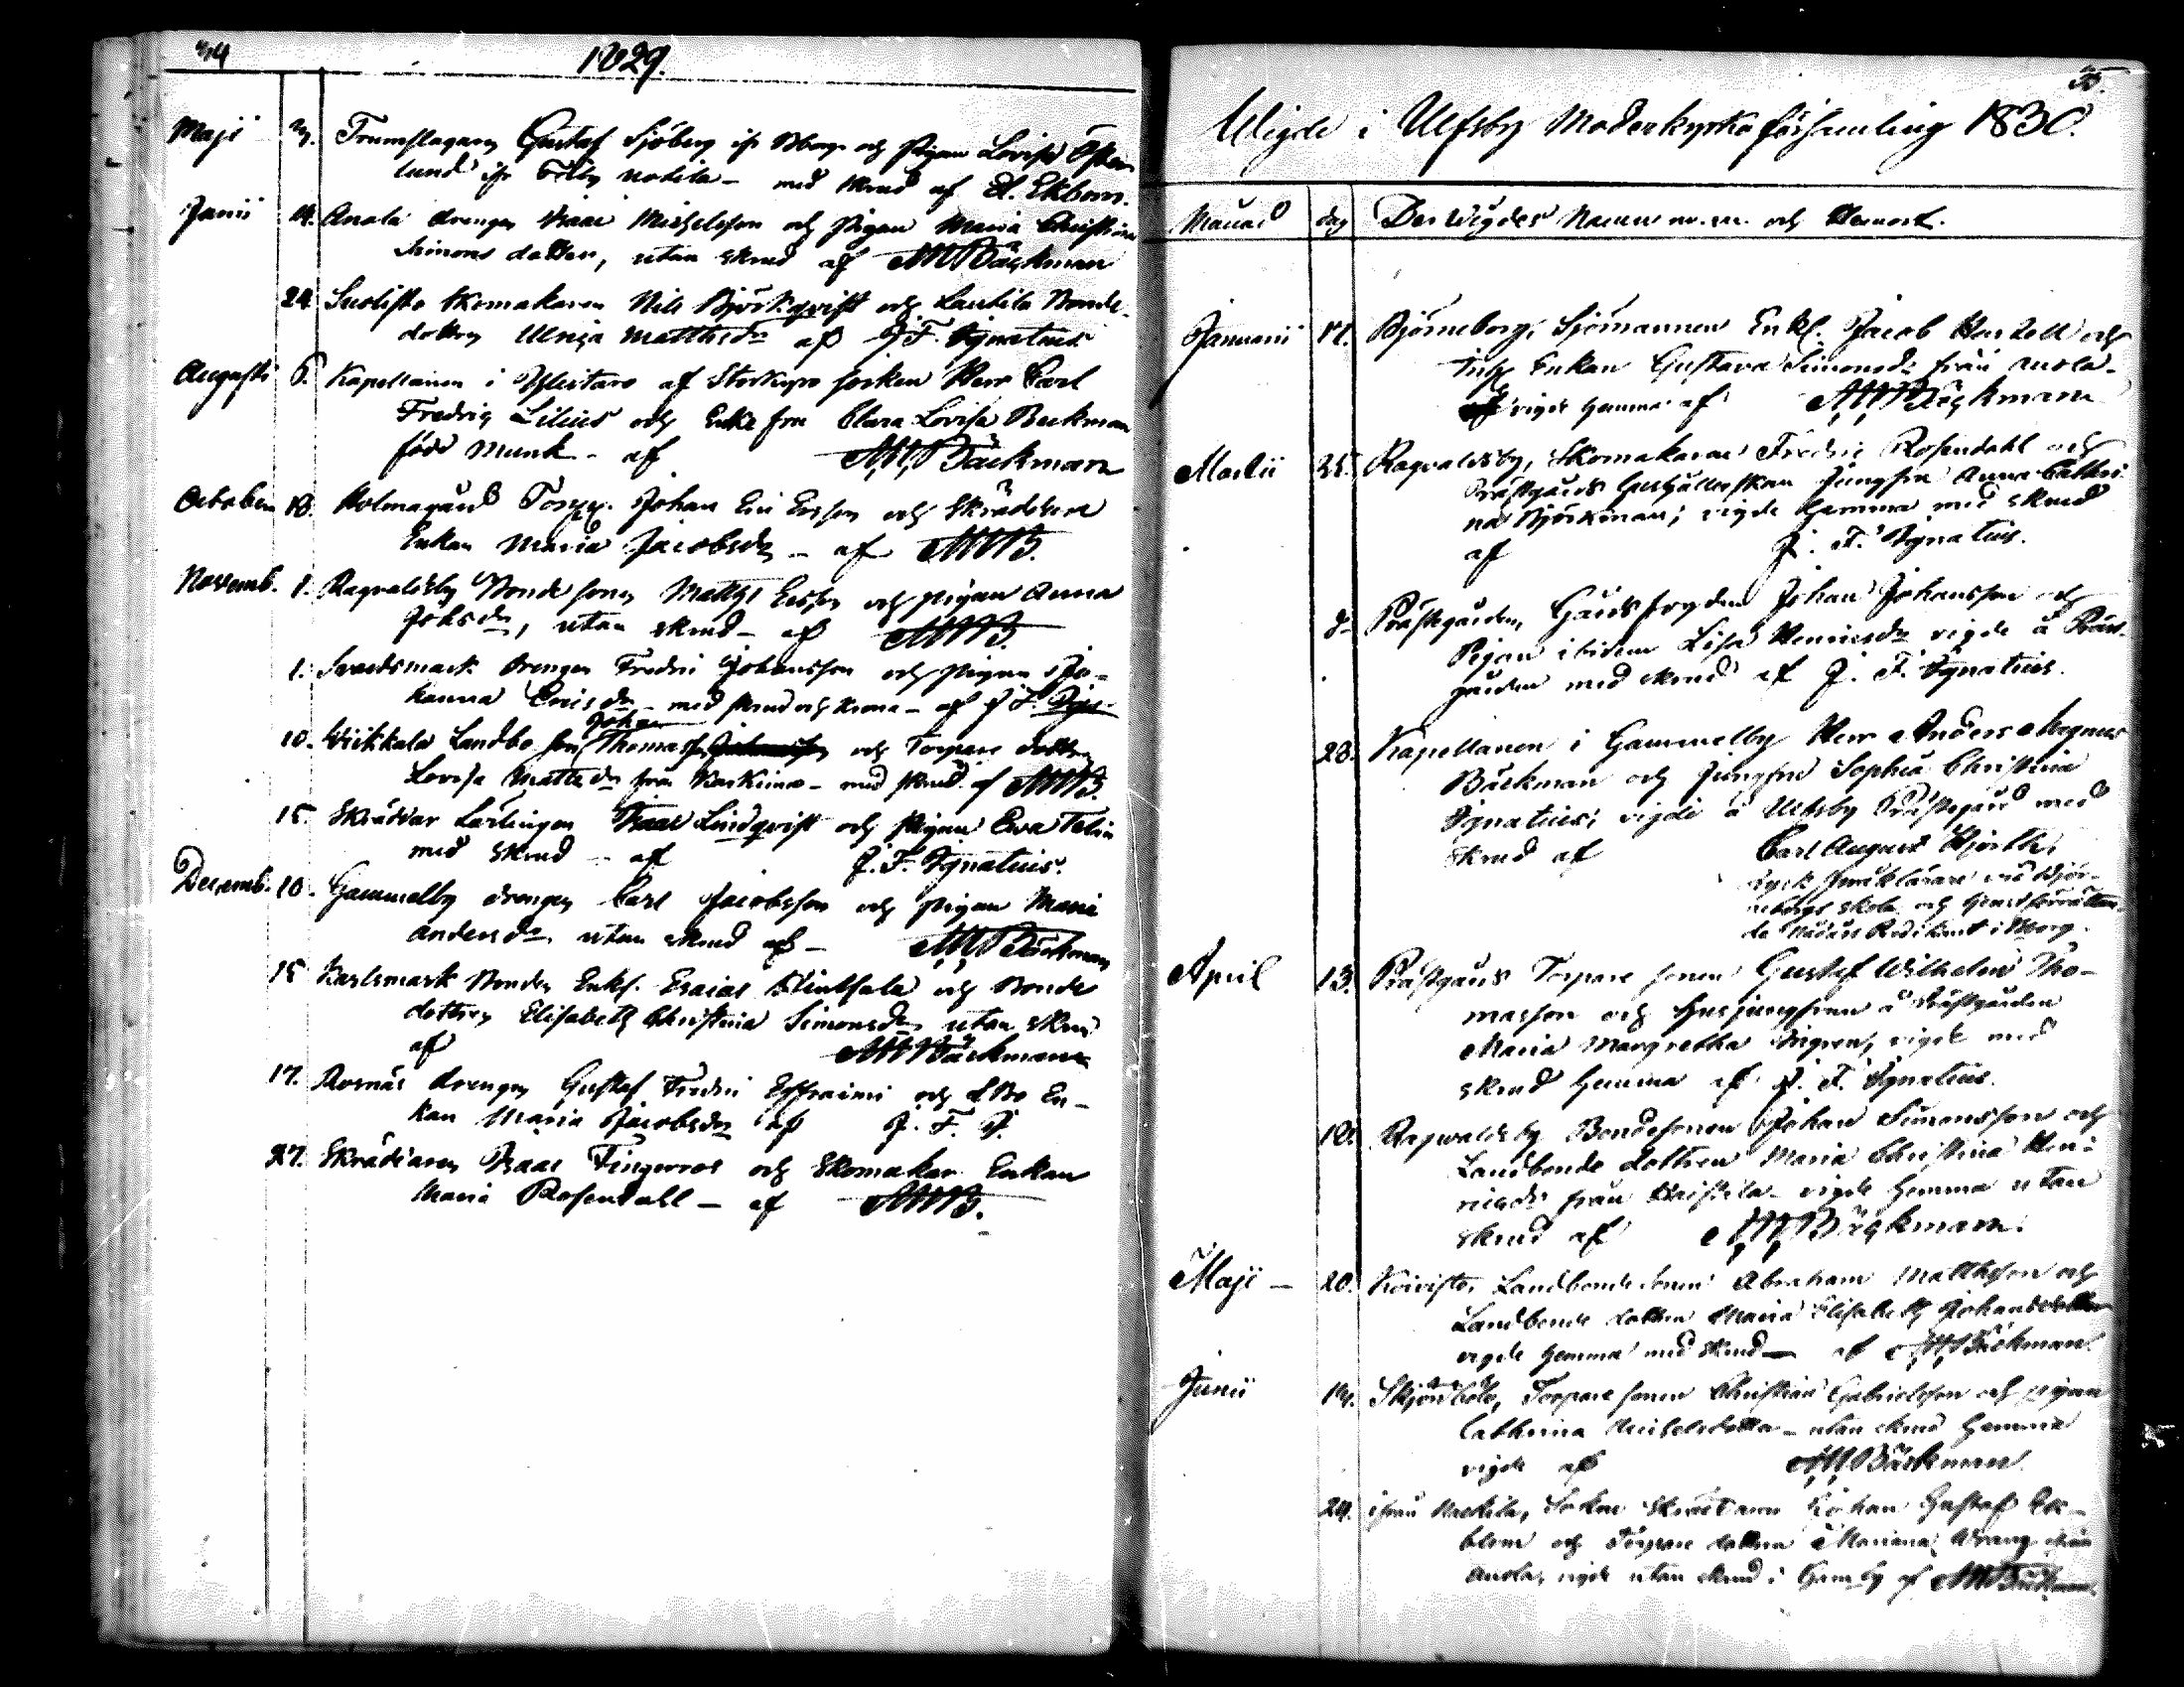 34
1829.
Maji 3. Trumslagaren Gustaf Sjöberg ifr. Bborg och pigan Lovisa Öster
lund ifr med skrud af Ekbom.
Junii 14. Anola drengen Isaac Michelsson och pigan Maria Christina
Simons dotter, utan skrud af AMBäckman
24. Suolisto Skomakaren Nils Björkqvist och Lautila Bonde-
dottren Ulrica Matthsdr af J F. Ignatius
Augusti 6. Kapellanen i Ylistaro af Storkyro socken Herr Carl
Fredric Lilius och Enkefru Clara Lovisa Beckman
född Munk - af AMBäckman
October 18. Holmagård Torp. Johan Eric Ersson och Skräddare
Enkan Maria Jacobsdr - af AMB.
Novemb. 1. Ragvaldsby Bonde sonen Matths Ersson och pigan Anna
Johsdr, utan skrud - af AMB.
1. Svartsmark drengen Fredric Johansson och pigan Jo-
hanna Ericsdr - med skrud och krona - af J F. Ign-
Johan
10. Wiikkala Landbo son Thomas och Torpare dottren
Lovisa Mattsdr från - med skrud af AMB.
15. Skräddar Lärlingen Isaac Lindqvist och pigan Eva
med skrud - af J. F. Ignatius.
Decemb. 10. Gammelby drengen Carl Jacobsson och pigan Maria
Andersdr utan skrud af - AMBäckman
15 Karlsmark Bonden Enkl. Esaias och Bonde
dottren Elisabeth Christina Simonsdr utan skrud
af AMBäckman
17. Rosnäs drengen Gustaf Fredric Effraimi och En-
kan Maria Jacobsdr af J. F. I.
27. Skräddaren Isaac Fingerroos och Skomakar Enkan
Maria Rosendall - af AMB.
35.
Wigde i Ulfsby Moderkyrko församling 1830.
Månad dag Der Wigdes Namn m.m. och Hemort.
Januarii 17. Björneborg, Sjömannen Enkl. Jacob och
Enkan Gustava Simonsdr från Anola -
vigde hemma af AMBäckman
Martii 25. Ragvaldsby, Skomakaren Fredric Rosendahl och
Prästgårds Hushållerskan Jungfru Anna Cathri-
na Björkman; vigde hemma med skrud
af J. F. Ignatius.
d- Prästgården, Gårdsfogden Johan Johansson och
Pigan ibidem Lisa Henricsdr vigde å Präst-
gården med skrud af J. F. Ignatius.
28. Kapellanen i Gammelby Herr Anders Magnus
Bäckman och Jungfru Sophia Christina
Ignatius; vigde å Ulfsby Prästgård med
skrud af Carl August Hjorth,
språklärare vid Björ-
neborgs skola och tjenstförrättan-
de i Bborg.
April 13. Prästgårds Torpare sonen Gustaf Wilhelm Tho-
masson och Husjungfrun å Prästgården
Maria Margretha vigde med
skrud hemma af J. F. Ignatius.
18. Ragwaldsby Bondesonen Johan Simonsson och
Landbonde dottren Maria Christina Hen-
ricsdr från vigde hemma utan
skrud af AMBäckman.
Maji - 20. Koivisto, Landbonde sonen Abraham Matthsson och
Landbonde dottren Maria Elisabeth Johansdotter
vigde hemma med skrud - af AMBäckman.
Junii 14. Torpare sonen Christian Gabrielsson och pigan
Cathrina Michelsdotter - utan skrud hemma
vigde af AMBäckman.
24. ifrån Socken Skräddaren Johan Gustaf Ek-
blom och Torpare dottren Mariana från
Anola, vigde utan skrud i af AMBäckman.